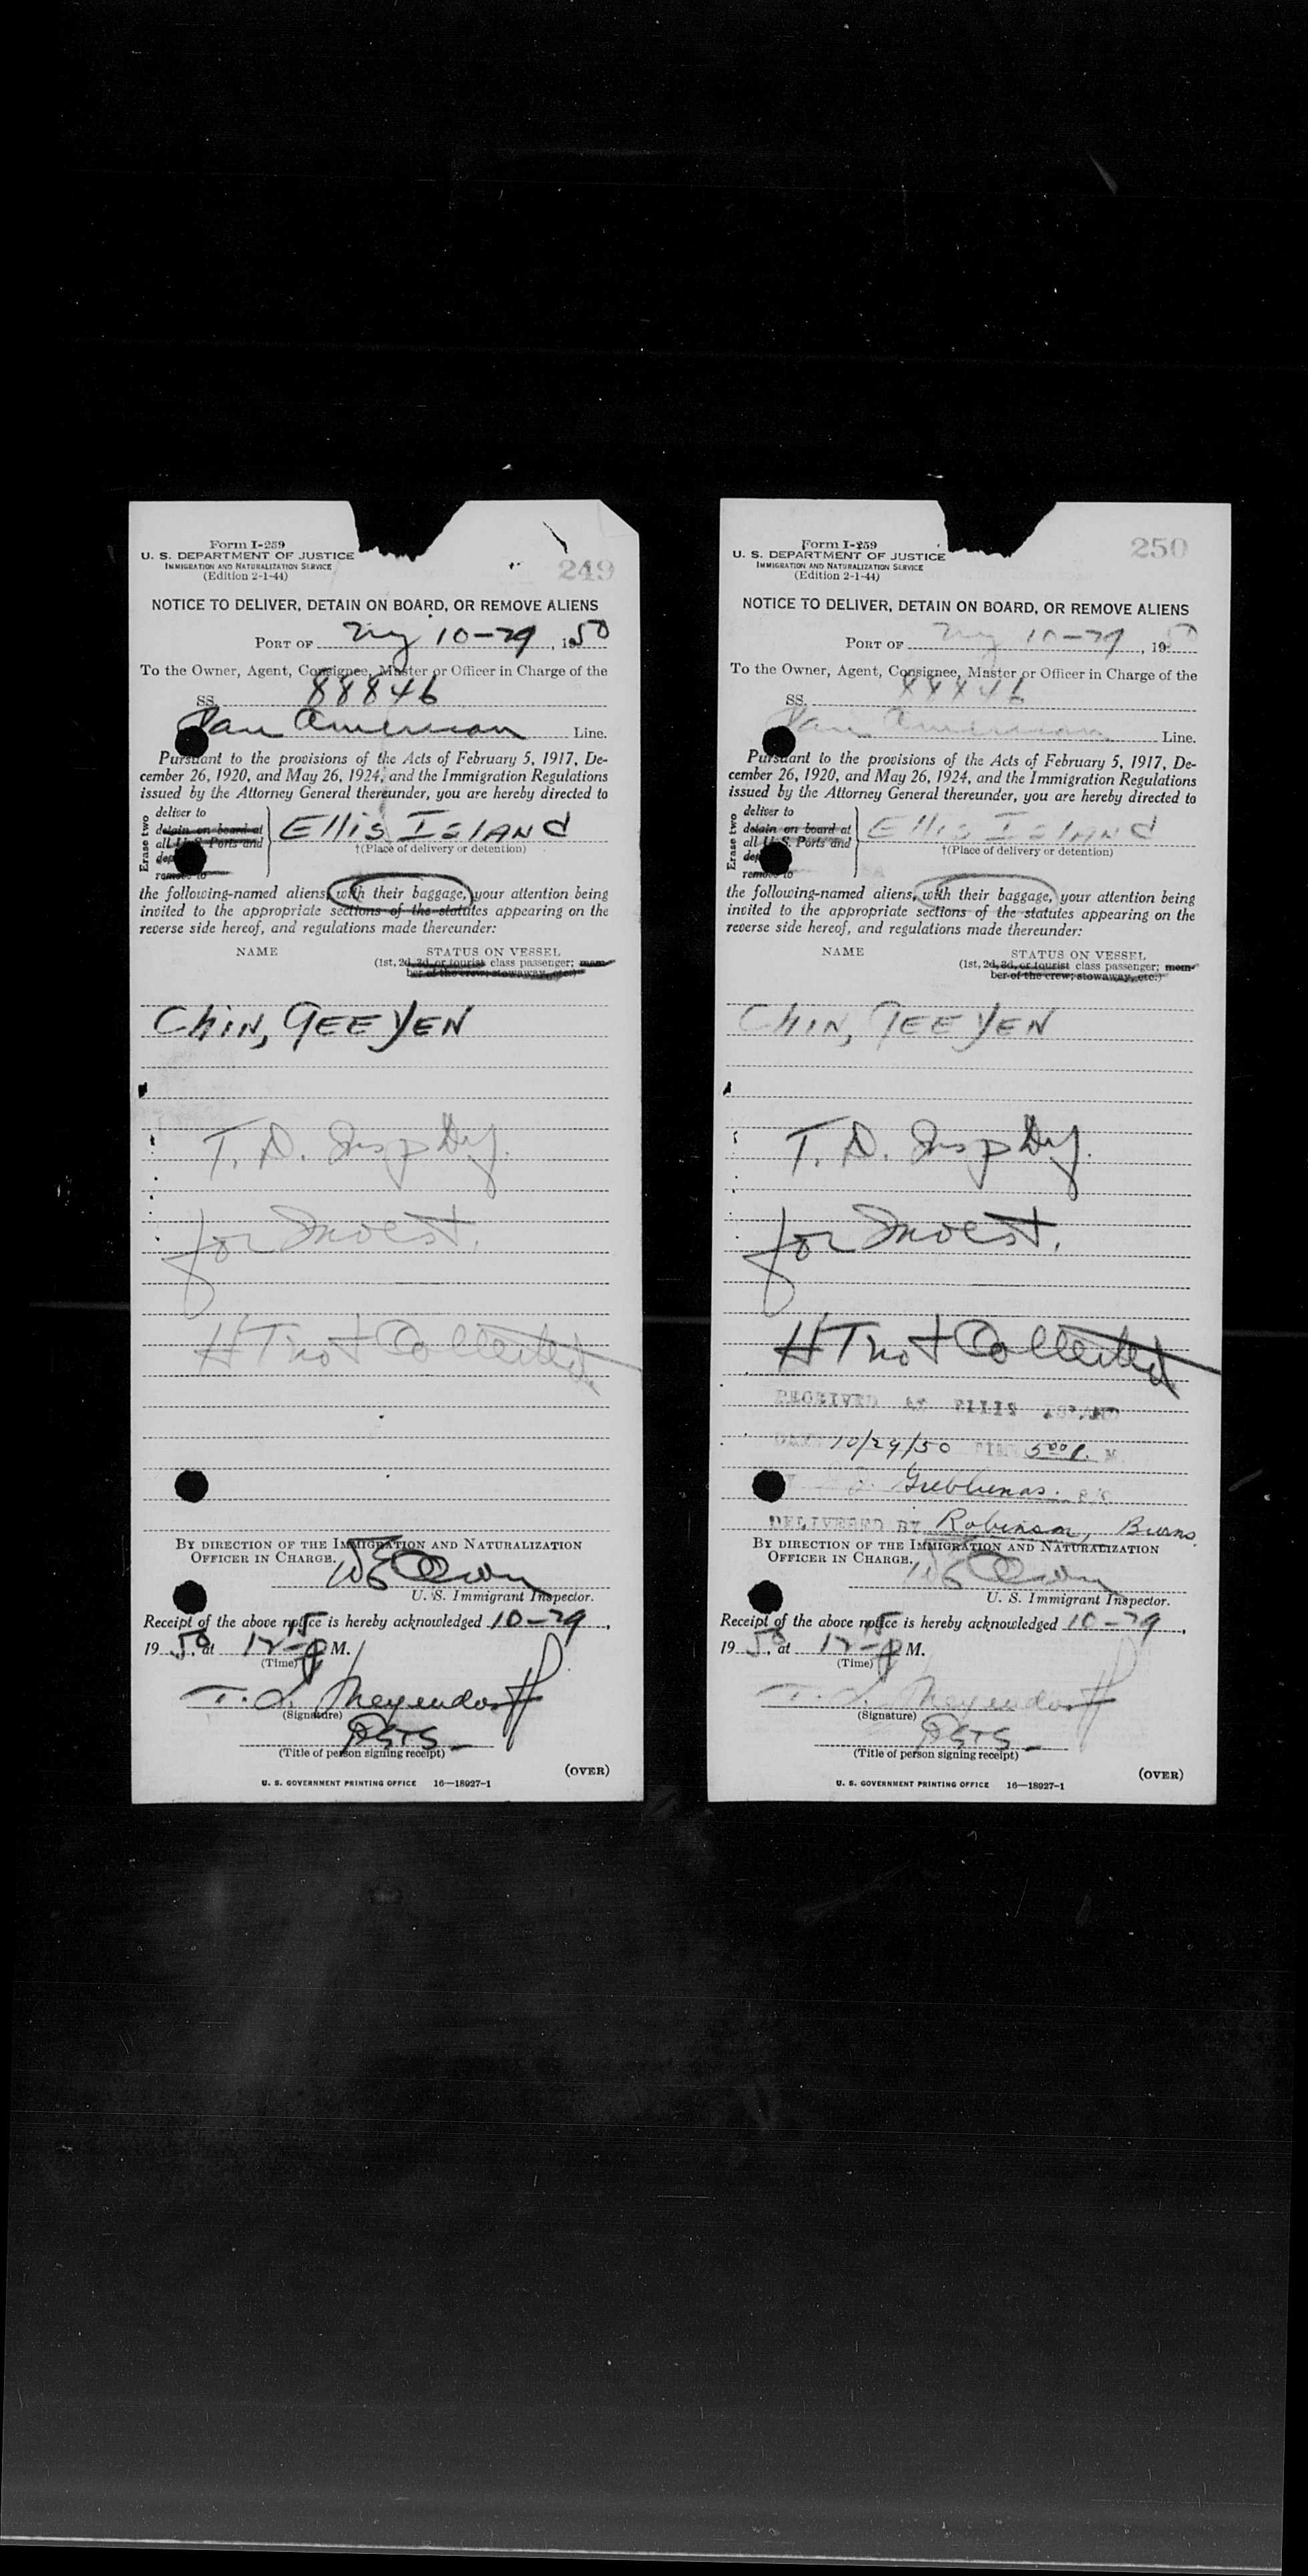 Form I-259
U. S. DEPARTMENT OF JUSTICE
IMMIGRATION AND NATURALIZATION SERVICE
(Edition 2-1-44)
249
NOTICE TO DELIVER, DETAIN ON BOARD, OR REMOVE ALIENS
PORT OF NY 10-29, 1950
To the Owner, Agent, Consignee, Master or Officer in Charge of the
SS. 88846
Pan American Line.
Pursuant to the provisions of the Acts of February 5, 1917, De-
cember 26, 1920, and May 26, 1924, and the Immigration Regulations
issued by the Attorney General thereunder, you are hereby directed to
Erase two
deliver to
detain on board at
all U. S. Ports and
dep
remove to
Ellis Island
†(Place of delivery or detention)
the following-named aliens, with their baggage, your attention being
invited to the appropriate sections of the statutes appearing on the
reverse side hereof, and regulations made thereunder:
NAME STATUS ON VESSEL
(1st, 2d, 3d, or tourist class passenger; mem-
ber of the crew; stowaway, etc.)
Chin, GEE YEN
T. D. Insp Dy.
for Invest.
HT not Collected
BY DIRECTION OF THE IMMIGRATION AND NATURALIZATION
OFFICER IN CHARGE.
U. S. Immigrant Inspector.
Receipt of the above notice is hereby acknowledged 10-29,
1950, at 12-15 P M.
(Time)
T. Meyendorff
(Signature)
(Title of person signing receipt)
(OVER)
U. S. GOVERNMENT PRINTING OFFICE 16—18927-1
Form I-259
U. S. DEPARTMENT OF JUSTICE
IMMIGRATION AND NATURALIZATION SERVICE
(Edition 2-1-44)
250
NOTICE TO DELIVER, DETAIN ON BOARD, OR REMOVE ALIENS
PORT OF NY 10-29, 1950
To the Owner, Agent, Consignee, Master or Officer in Charge of the
SS. 88846
Pan American Line.
Pursuant to the provisions of the Acts of February 5, 1917, De-
cember 26, 1920, and May 26, 1924, and the Immigration Regulations
issued by the Attorney General thereunder, you are hereby directed to
Erase two
deliver to
detain on board at
all U. S. Ports and
dep
remove to
Ellis Island
†(Place of delivery or detention)
the following-named aliens, with their baggage, your attention being
invited to the appropriate sections of the statutes appearing on the
reverse side hereof, and regulations made thereunder:
NAME STATUS ON VESSEL
(1st, 2d, 3d, or tourist class passenger; mem-
ber of the crew; stowaway, etc.)
Chin, GEE YEN
T. D. Insp Dy.
for Invest.
HT not Collected
RECEIVED AT ELLIS ISLAND
DATE 10/29/50 TIME 5:00 P. M.
DELIVERED BY Robinson, Burns
BY DIRECTION OF THE IMMIGRATION AND NATURALIZATION
OFFICER IN CHARGE.
U. S. Immigrant Inspector.
Receipt of the above notice is hereby acknowledged 10-29,
1950, at 12-15 P M.
(Time)
T. Meyendorff
(Signature)
(Title of person signing receipt)
(OVER)
U. S. GOVERNMENT PRINTING OFFICE 16—18927-1